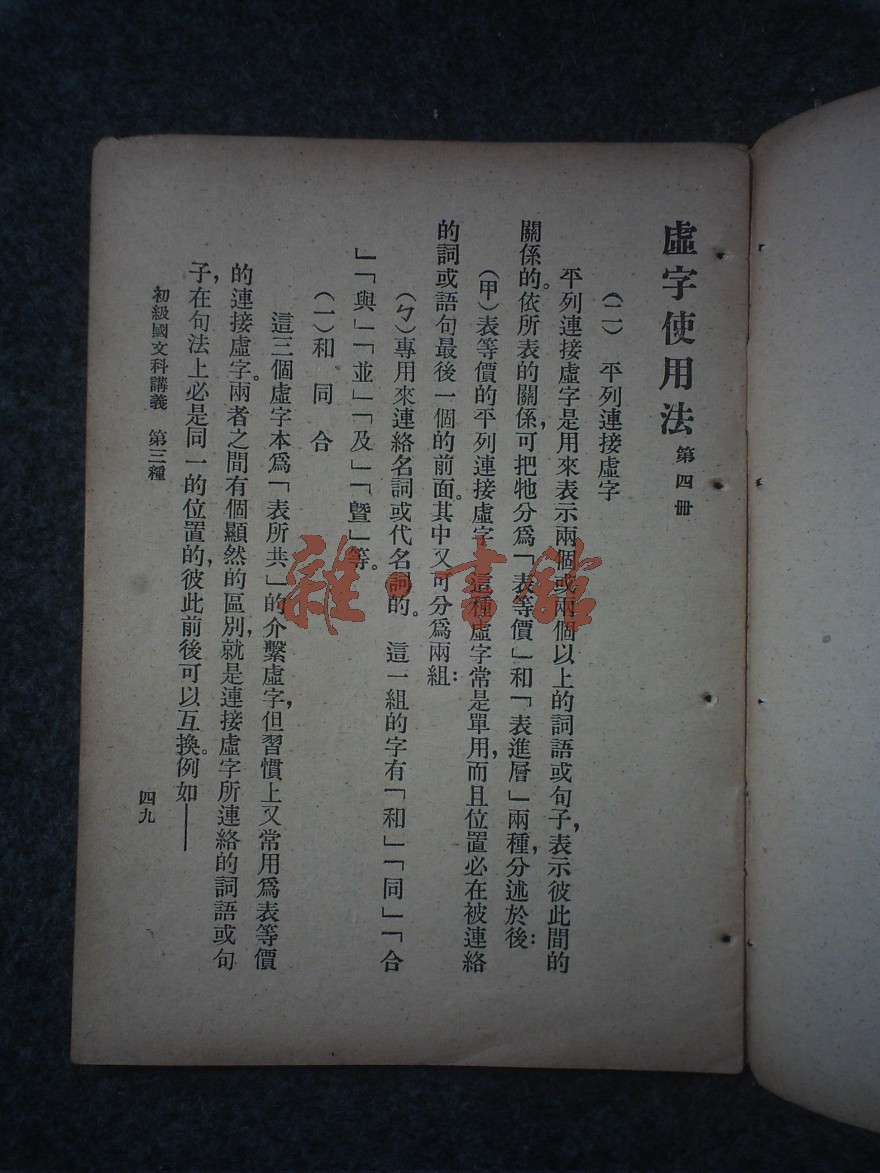 虛字使用法 第四册
(二) 平列連接虛字
平列連接虛字是用來表示兩個或兩個以上的詞語或句子,表示彼此間的
關係的。依所表的關係,可把牠分爲「表等價」和「表進層」兩種,分述於後:
(甲)表等價的平列連接虛字 這種虛字常是單用,而且位置必在被連絡
的詞或語句最後一個的前面。其中又可分爲兩組:
(ㄅ)專用來連絡名詞或代名詞的。 這一組的字有「和」「同」「合
」「與」「並」「及」「曁」等。
(一)和 同 合
這三個虛字本爲「表所共」的介繫虛字,但習慣上又常用爲表等價
的連接虛字。兩者之間有個顯然的區別,就是連接虛字所連絡的詞語或句
子,在句法上必是同一的位置的,彼此前後可以互換。例如——
初級國文科講義 第三種
四九
雜·書館